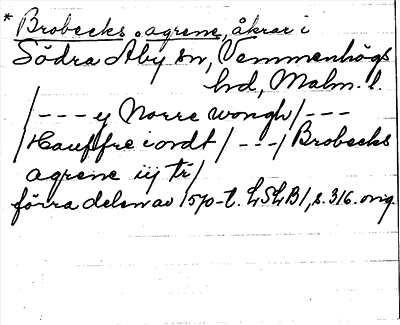 * Brobecks agrene, åkrar i
Södra Åby sn, Vemmenhögs
hd, Malm. l.
/--- y Norre wongh/---
/Hauffre iordt/---/Brobecks
agrene iij tr/
förra delen av 1570-t. LSLB1, s. 316. orig.